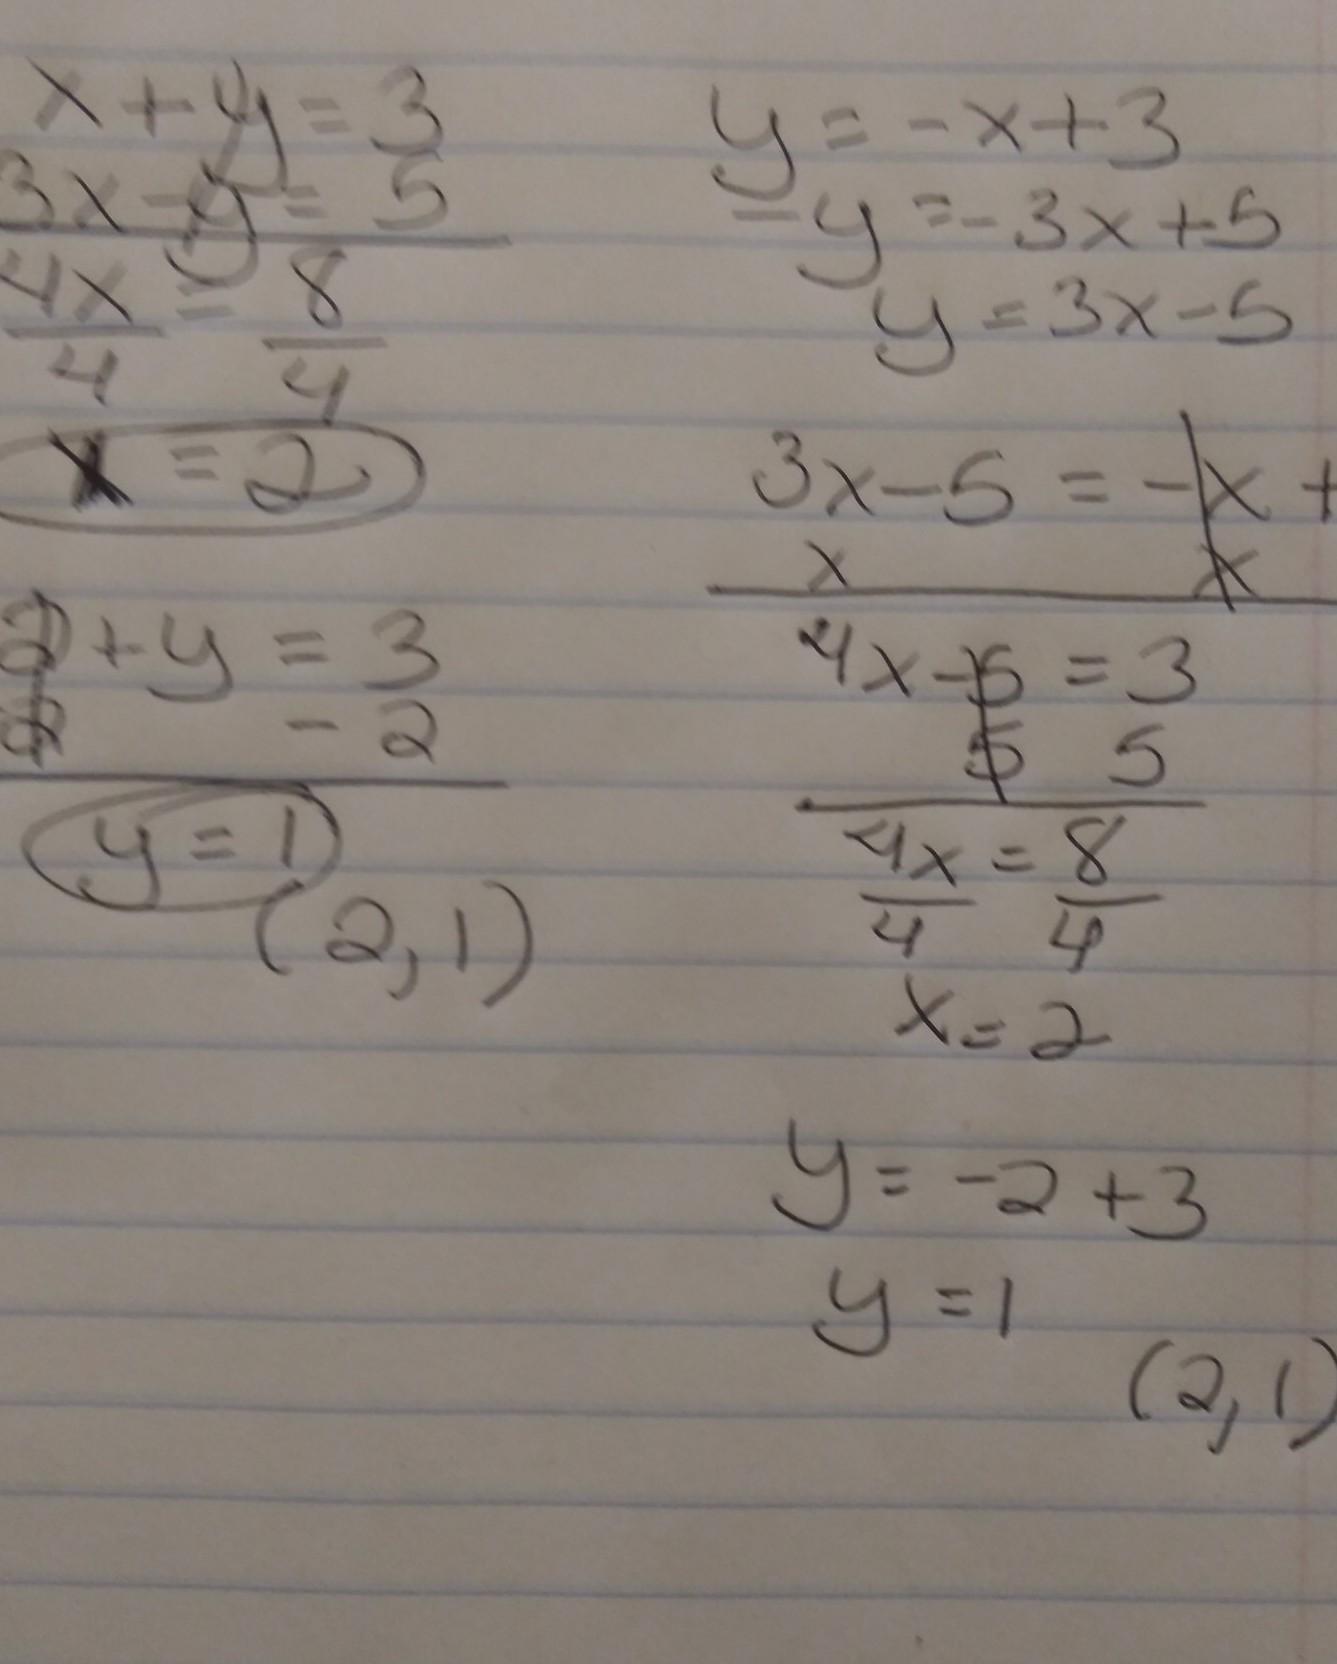 x + y = 3
3x - y = 5
4x = 8
4 4
x = 2
2 + y = 3
2 - 2
y = 1
(2, 1)
y = -x + 3
-y = -3x + 5
y = 3x - 5
3x - 5 = -x +
x x
4x - 5 = 3
5 5
4x = 8
4 4
x = 2
y = -2 + 3
y = 1
(2, 1)